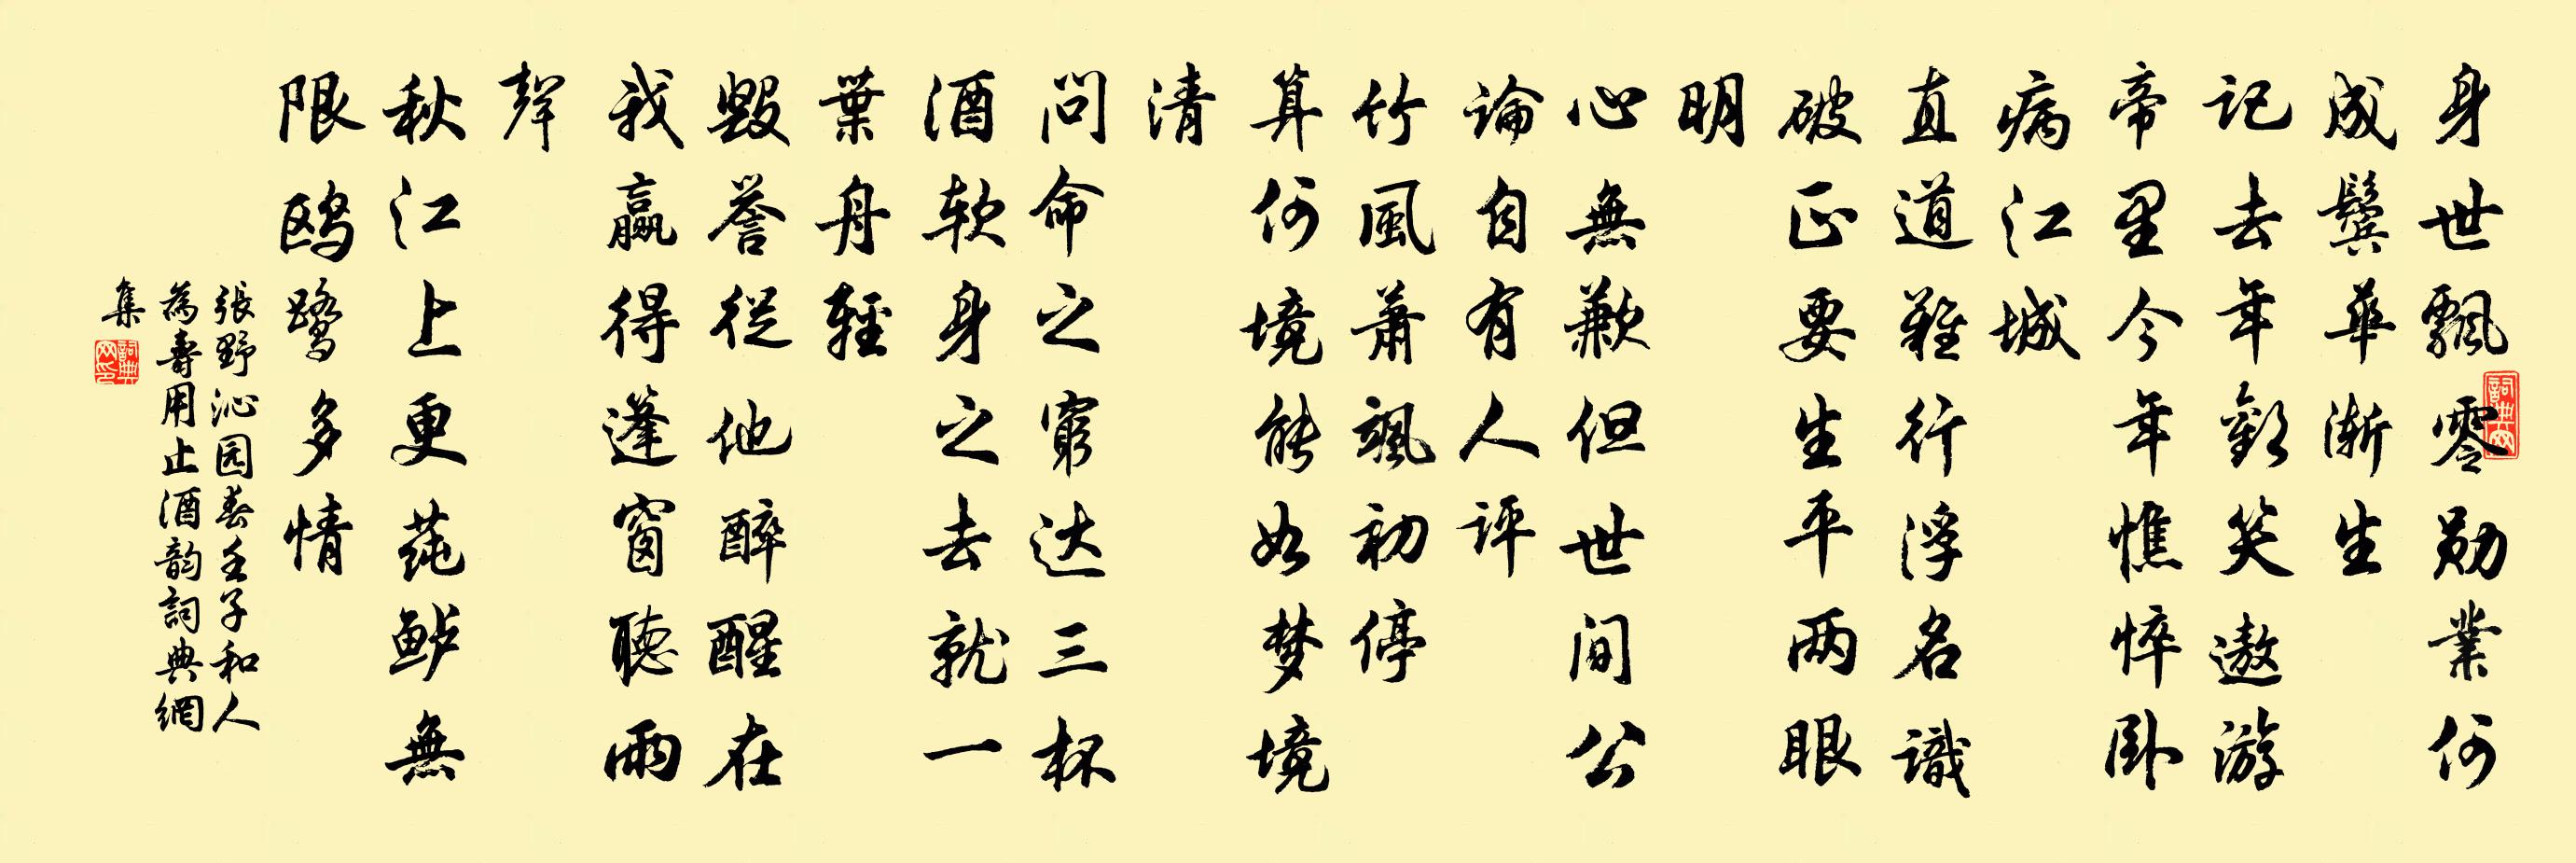 身世飄零勋業何
成鬓華渐生
记去年歡笑遨游
帝里今年憔悴卧
病江城
直道難行浮名識
破正要生平两眼
明
心無歉但世间公
論自有人评
竹風萧飒初停
算何境能如梦境
清
问命之窮达三杯
酒软身之去就一
葉舟輕
毁誉從他醉醒在
我赢得蓬窗聽雨
聲
秋江上更莼鲈無
限鸥鹭多情
張野沁园春壬子和人
為壽用止酒韵詞典網
集
詞典网
詞典网印